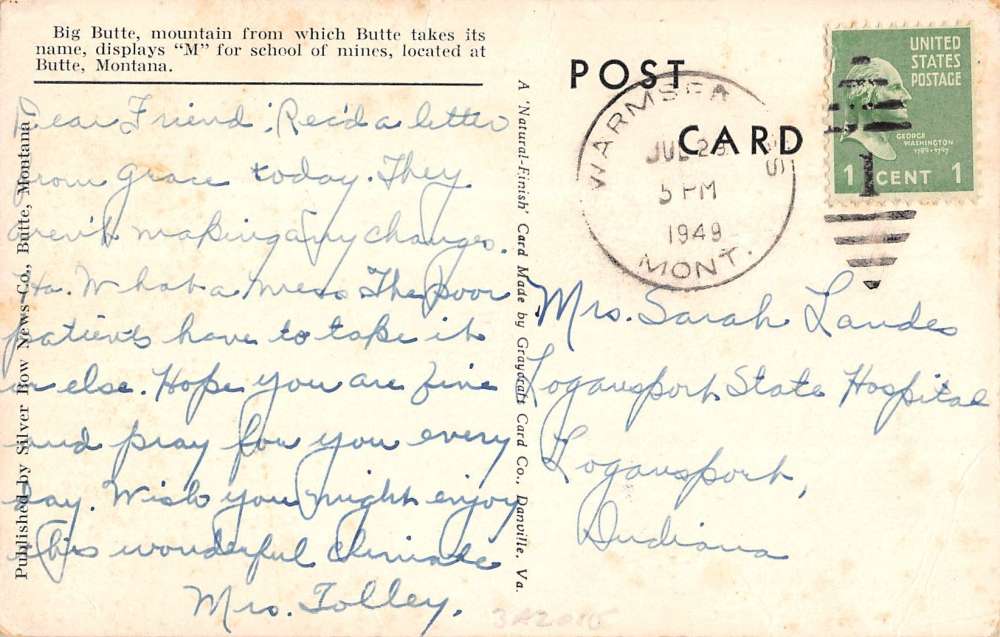 Big Butte, mountain from which Butte takes its
name, displays "M" for school of mines, located at
Butte, Montana.
Dear Friend; Rec'd a letter
from Grace today. They
aren't making any changes.
Ha. What a mess. The poor
patients have to take it
or else. Hope you are fine
and pray for you every
day. Wish you might enjoy
this wonderful climate
Mrs. Tolley.
Published by Silver Bow News Co., Butte, Montana
A 'Natural-Finish' Card Made by Graycraft Card Co., Danville, Va.
POST
CARD
WARMSPR
JUL
5 PM
1949
MONT.
UNITED
STATES
POSTAGE
GEORGE
WASHINGTON
1789-1797
1 CENT 1
1
Mrs. Sarah Landes
Logansport State Hospital
Logansport,
Indiana